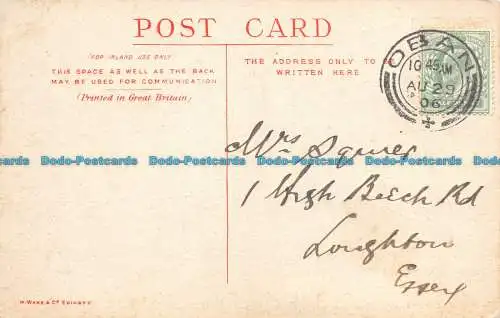 POST CARD
(FOR INLAND USE ONLY)
THIS SPACE AS WELL AS THE BACK
MAY BE USED FOR COMMUNICATION
(Printed in Great Britain)
THE ADDRESS ONLY TO BE
WRITTEN HERE
OBAN
10 45 AM
AU 29
06
Dodo-Postcards Dodo-Postcards Dodo-Postcards Dodo-Postcards Dodo-Postcards
Mrs Squires
1 High Beech Rd
Loughton
Essex